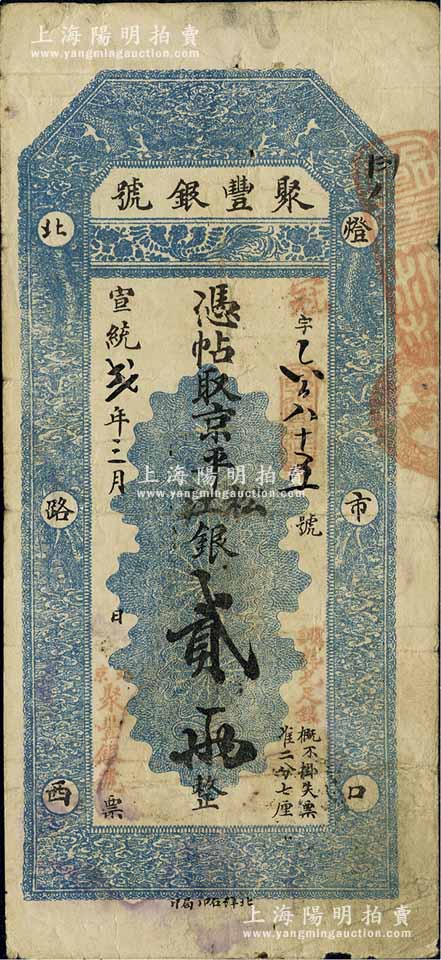 上海陽明拍賣
www.yangmingauction.com
聚豐銀號
燈市口
北路西
字
八十
號
憑帖取京平松江銀貳兩整
宣統
年三月
日
票
概不掛失票
准二分七厘
聚豐銀
上海陽明拍賣
www.yangmingauction.com
上海陽明拍賣
www.yangmingauction.com